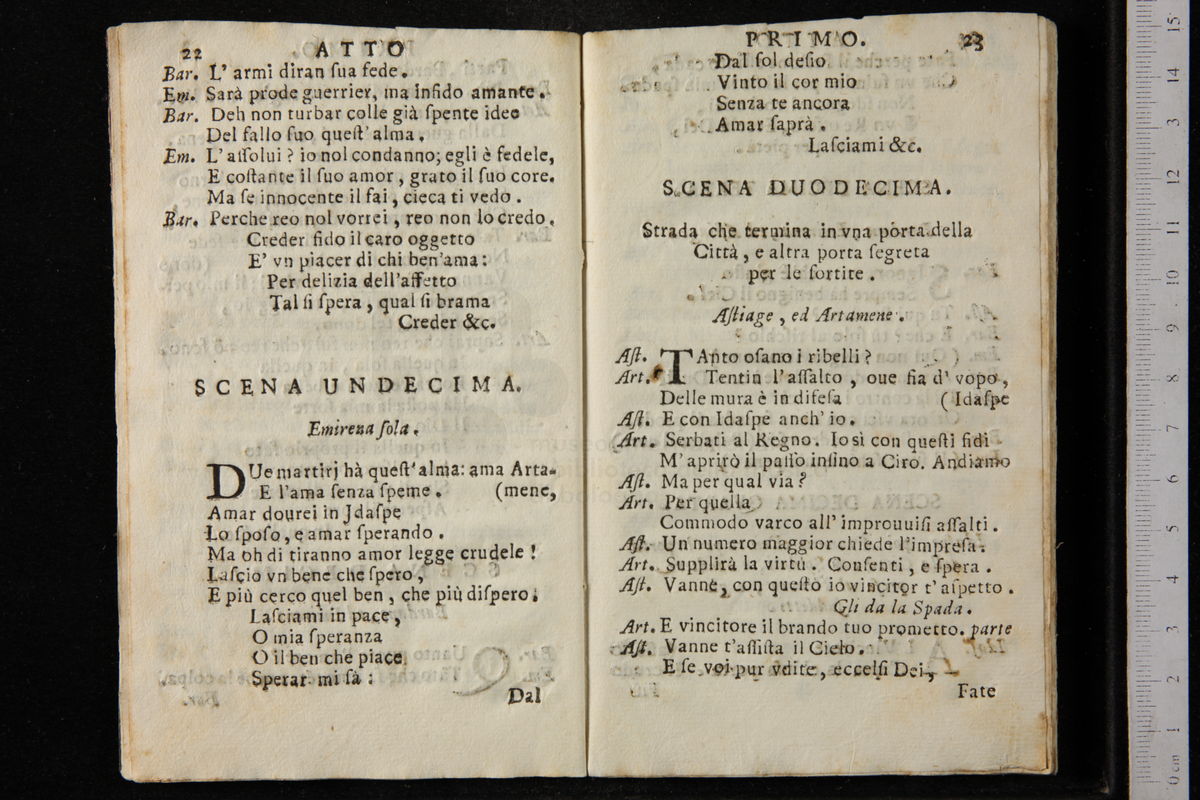 22 ATTO
Bar. L' armi diran ſua fede.
Em. Sarà prode guerrier, ma infido amante.
Bar. Deh non turbar colle già ſpente idee
Del fallo ſuo queſt' alma.
Em. L' aſſolui? io nol condanno; egli è fedele,
E coſtante il ſuo amor, grato il ſuo core.
Ma ſe innocente il fai, cieca ti vedo.
Bar. Perche reo nol vorrei, reo non lo credo.
Creder fido il caro oggetto
E' vn piacer di chi ben'ama:
Per delizia dell'affetto
Tal ſi ſpera, qual ſi brama
Creder &c.
SCENA UNDECIMA.
Emirena ſola.
DUe martirj hà queſt'alma: ama Arta-
E l'ama ſenza ſpeme. (mene,
Amar dourei in Jdaſpe
Lo ſpoſo, e amar ſperando.
Ma oh di tiranno amor legge crudele!
Laſcio vn bene che ſpero,
E più cerco quel ben, che più diſpero.
Laſciami in pace,
O mia ſperanza
O il ben che piace
Sperar mi fà:
Dal
PRIMO. 23
Dal ſol deſio
Vinto il cor mio
Senza te ancora
Amar ſaprà.
Laſciami &c.
SCENA DUODECIMA.
Strada che termina in vna porta della
Città, e altra porta ſegreta
per le ſortite.
Aſtiage, ed Artamene.
Aſt. TAnto oſano i ribelli?
Art. Tentin l'aſſalto, oue ſia d' vopo,
Delle mura è in difeſa (Idaſpe
Aſt. E con Idaſpe anch' io.
Art. Serbati al Regno. Io sì con queſti fidi
M' aprirò il paſſo inſino a Ciro. Andiamo
Aſt. Ma per qual via?
Art. Per quella
Commodo varco all' improuuiſi aſſalti.
Aſt. Un numero maggior chiede l'impreſa.
Art. Supplirà la virtù. Conſenti, e ſpera.
Aſt. Vanne, con queſto io vincitor t'aſpetto.
Gli da la Spada.
Art. E vincitore il brando tuo prometto. parte
Aſt. Vanne t'aſſiſta il Cielo.
E ſe voi pur vdite, eccelſi Dei,
Fate